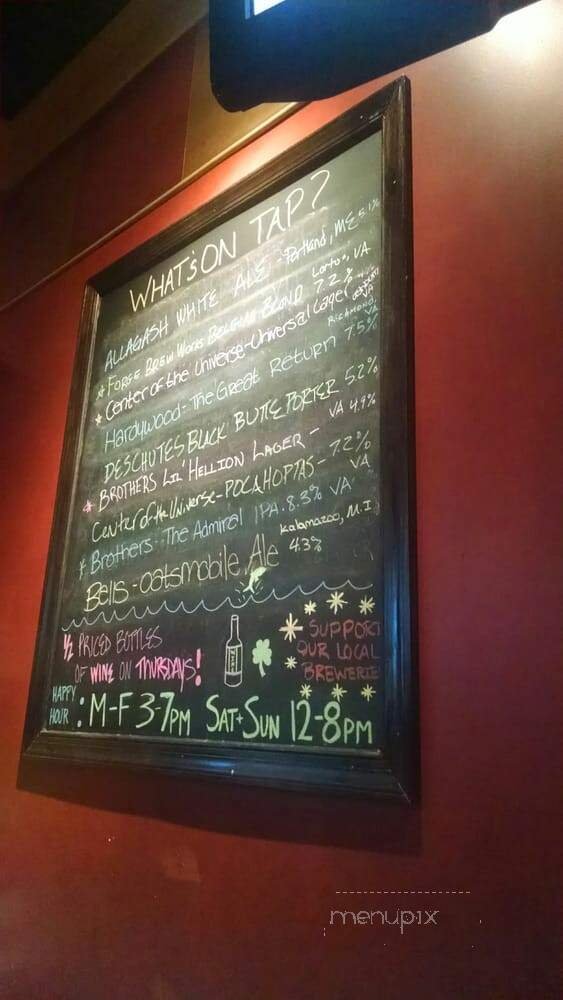 WHAT'S ON TAP?
ALLAGASH WHITE ALE - Portland, ME 5.1%
FORGE BREW WORKS BELGIAN BLOND 7.2% Lorton, VA
Center of the Universe - Universal Lager VA
Hardywood - The Great Return 7.5% RICHMOND, VA
DESCHUTES BLACK BUTTE PORTER 5.2%
BROTHERS LIL' HELLION LAGER - VA 4.9%
Center of the Universe - POCAHOPTAS - 7.2% VA
Brothers - The Admiral IPA . 8.3% VA
Bells - oatsmobile Ale Kalamazoo, M.I.
4.3%
1/2 PRICED BOTTLES
OF WINE ON THURSDAYS!
SUPPORT
OUR LOCAL
BREWERIE
HAPPY
HOUR : M-F 3-7PM SAT + SUN 12-8PM
menupix